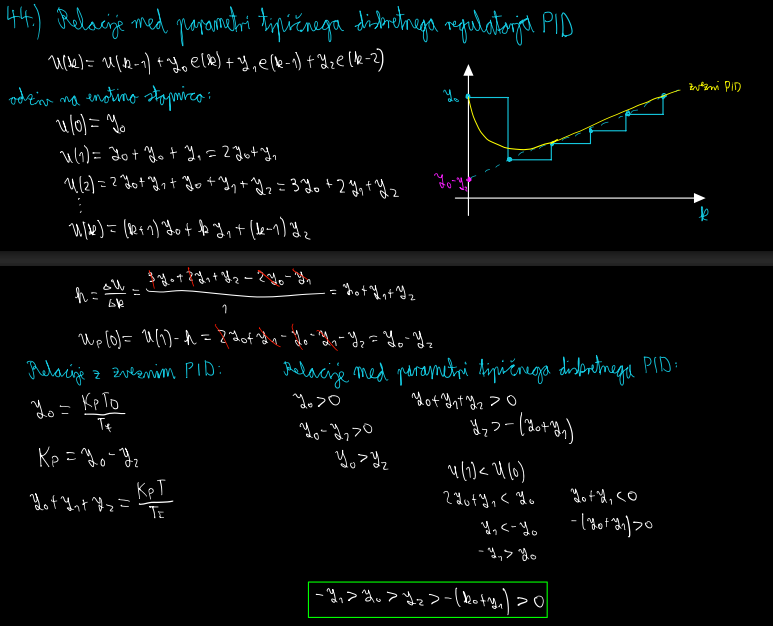 44.) Relacije med parametri tipičnega diskretnega regulatorja PID
u(k) = u(k-1) + y₀e(k) + y₁e(k-1) + y₂e(k-2)
odziv na enotino stopnico:
u(0) = y₀
u(1) = y₀ + y₀ + y₁ = 2y₀ + y₁
u(2) = 2y₀ + y₁ + y₀ + y₁ + y₂ = 3y₀ + 2y₁ + y₂
⋮
u(k) = (k+1)y₀ + k y₁ + (k-1)y₂
y₀
zvezni PID
y₀-y₂
k
h = Δu/Δk = (3y₀ + 2y₁ + y₂ - 2y₀ - y₁)/1 = y₀ + y₁ + y₂
uₚ(0) = u(1) - h = 2y₀ + y₁ - y₀ - y₁ - y₂ = y₀ - y₂
Relacije z zveznim PID:
y₀ = KₚT_D/T
Kₚ = y₀ - y₂
y₀ + y₁ + y₂ = KₚT/T_I
Relacije med parametri tipičnega diskretnega PID:
y₀ > 0
y₀ + y₁ + y₂ > 0
y₀ - y₂ > 0
y₂ > -(y₀ + y₁)
y₀ > y₂
u(1) < u(0)
2y₀ + y₁ < y₀
y₀ + y₁ < 0
y₁ < -y₀
-(y₀ + y₁) > 0
-y₁ > y₀
-y₁ > y₀ > y₂ > -(k₀ + y₁) > 0